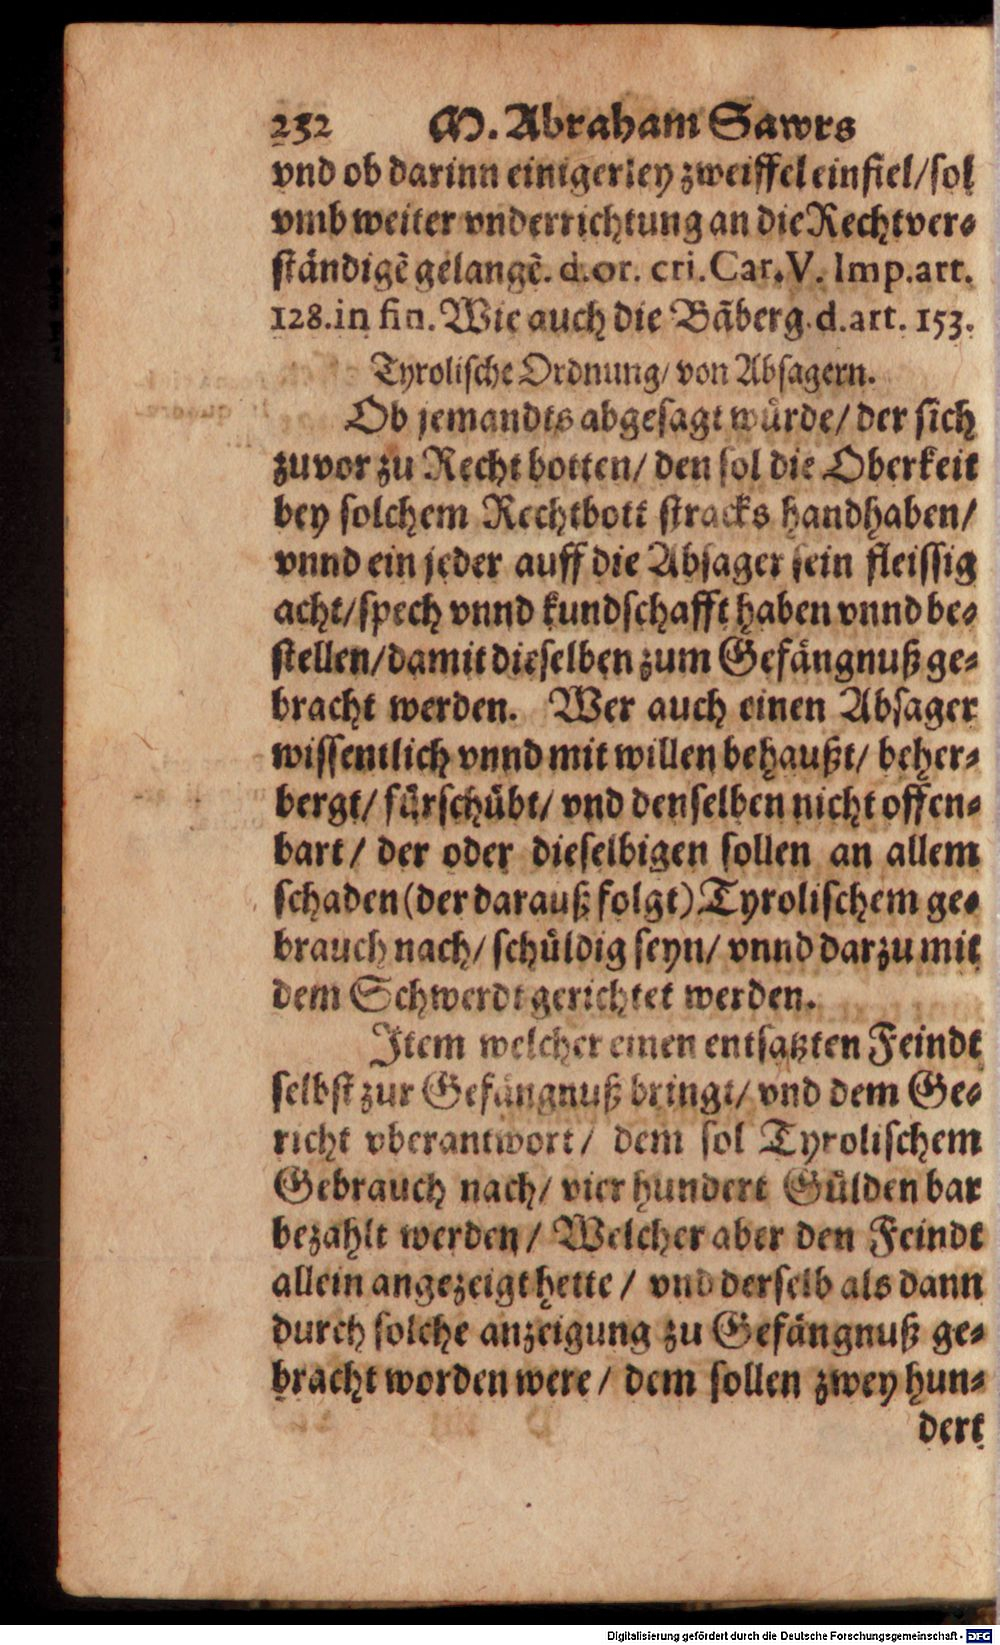 232 M. Abraham Sawrs
vnd ob darinn einigerley zweiffel einfiel/ sol
vmb weiter vnderrichtung an die Rechtver-
ständigẽ gelangẽ. d. or. cri. Car. V. Imp. art.
128. in fin. Wie auch die Bãberg. d. art. 153.
Tyrolische Ordnung/ von Absagern.
Ob jemandts abgesagt würde/ der sich
zuvor zu Recht botten/ den sol die Oberkeit
bey solchem Rechtbott stracks handhaben/
vnnd ein jeder auff die Absager sein fleissig
acht/ spech vnnd kundschafft haben vnnd be-
stellen/ damit dieselben zum Gefängnuß ge-
bracht werden. Wer auch einen Absager
wissentlich vnnd mit willen behaußt/ beher-
bergt/ fürschübt/ vnd denselben nicht offen-
bart/ der oder dieselbigen sollen an allem
schaden (der darauß folgt) Tyrolischem ge-
brauch nach/ schüldig seyn/ vnnd darzu mit
dem Schwerdt gerichtet werden.
Item welcher einen entsatzten Feindt
selbst zur Gefängnuß bringt/ vnd dem Ge-
richt vberantwort/ dem sol Tyrolischem
Gebrauch nach/ vier hundert Gülden bar
bezahlt werden/ Welcher aber den Feindt
allein angezeigt hette/ vnd derselb als dann
durch solche anzeigung zu Gefängnuß ge-
bracht worden were/ dem sollen zwey hun-
dert
Digitalisierung gefördert durch die Deutsche Forschungsgemeinschaft - DFG